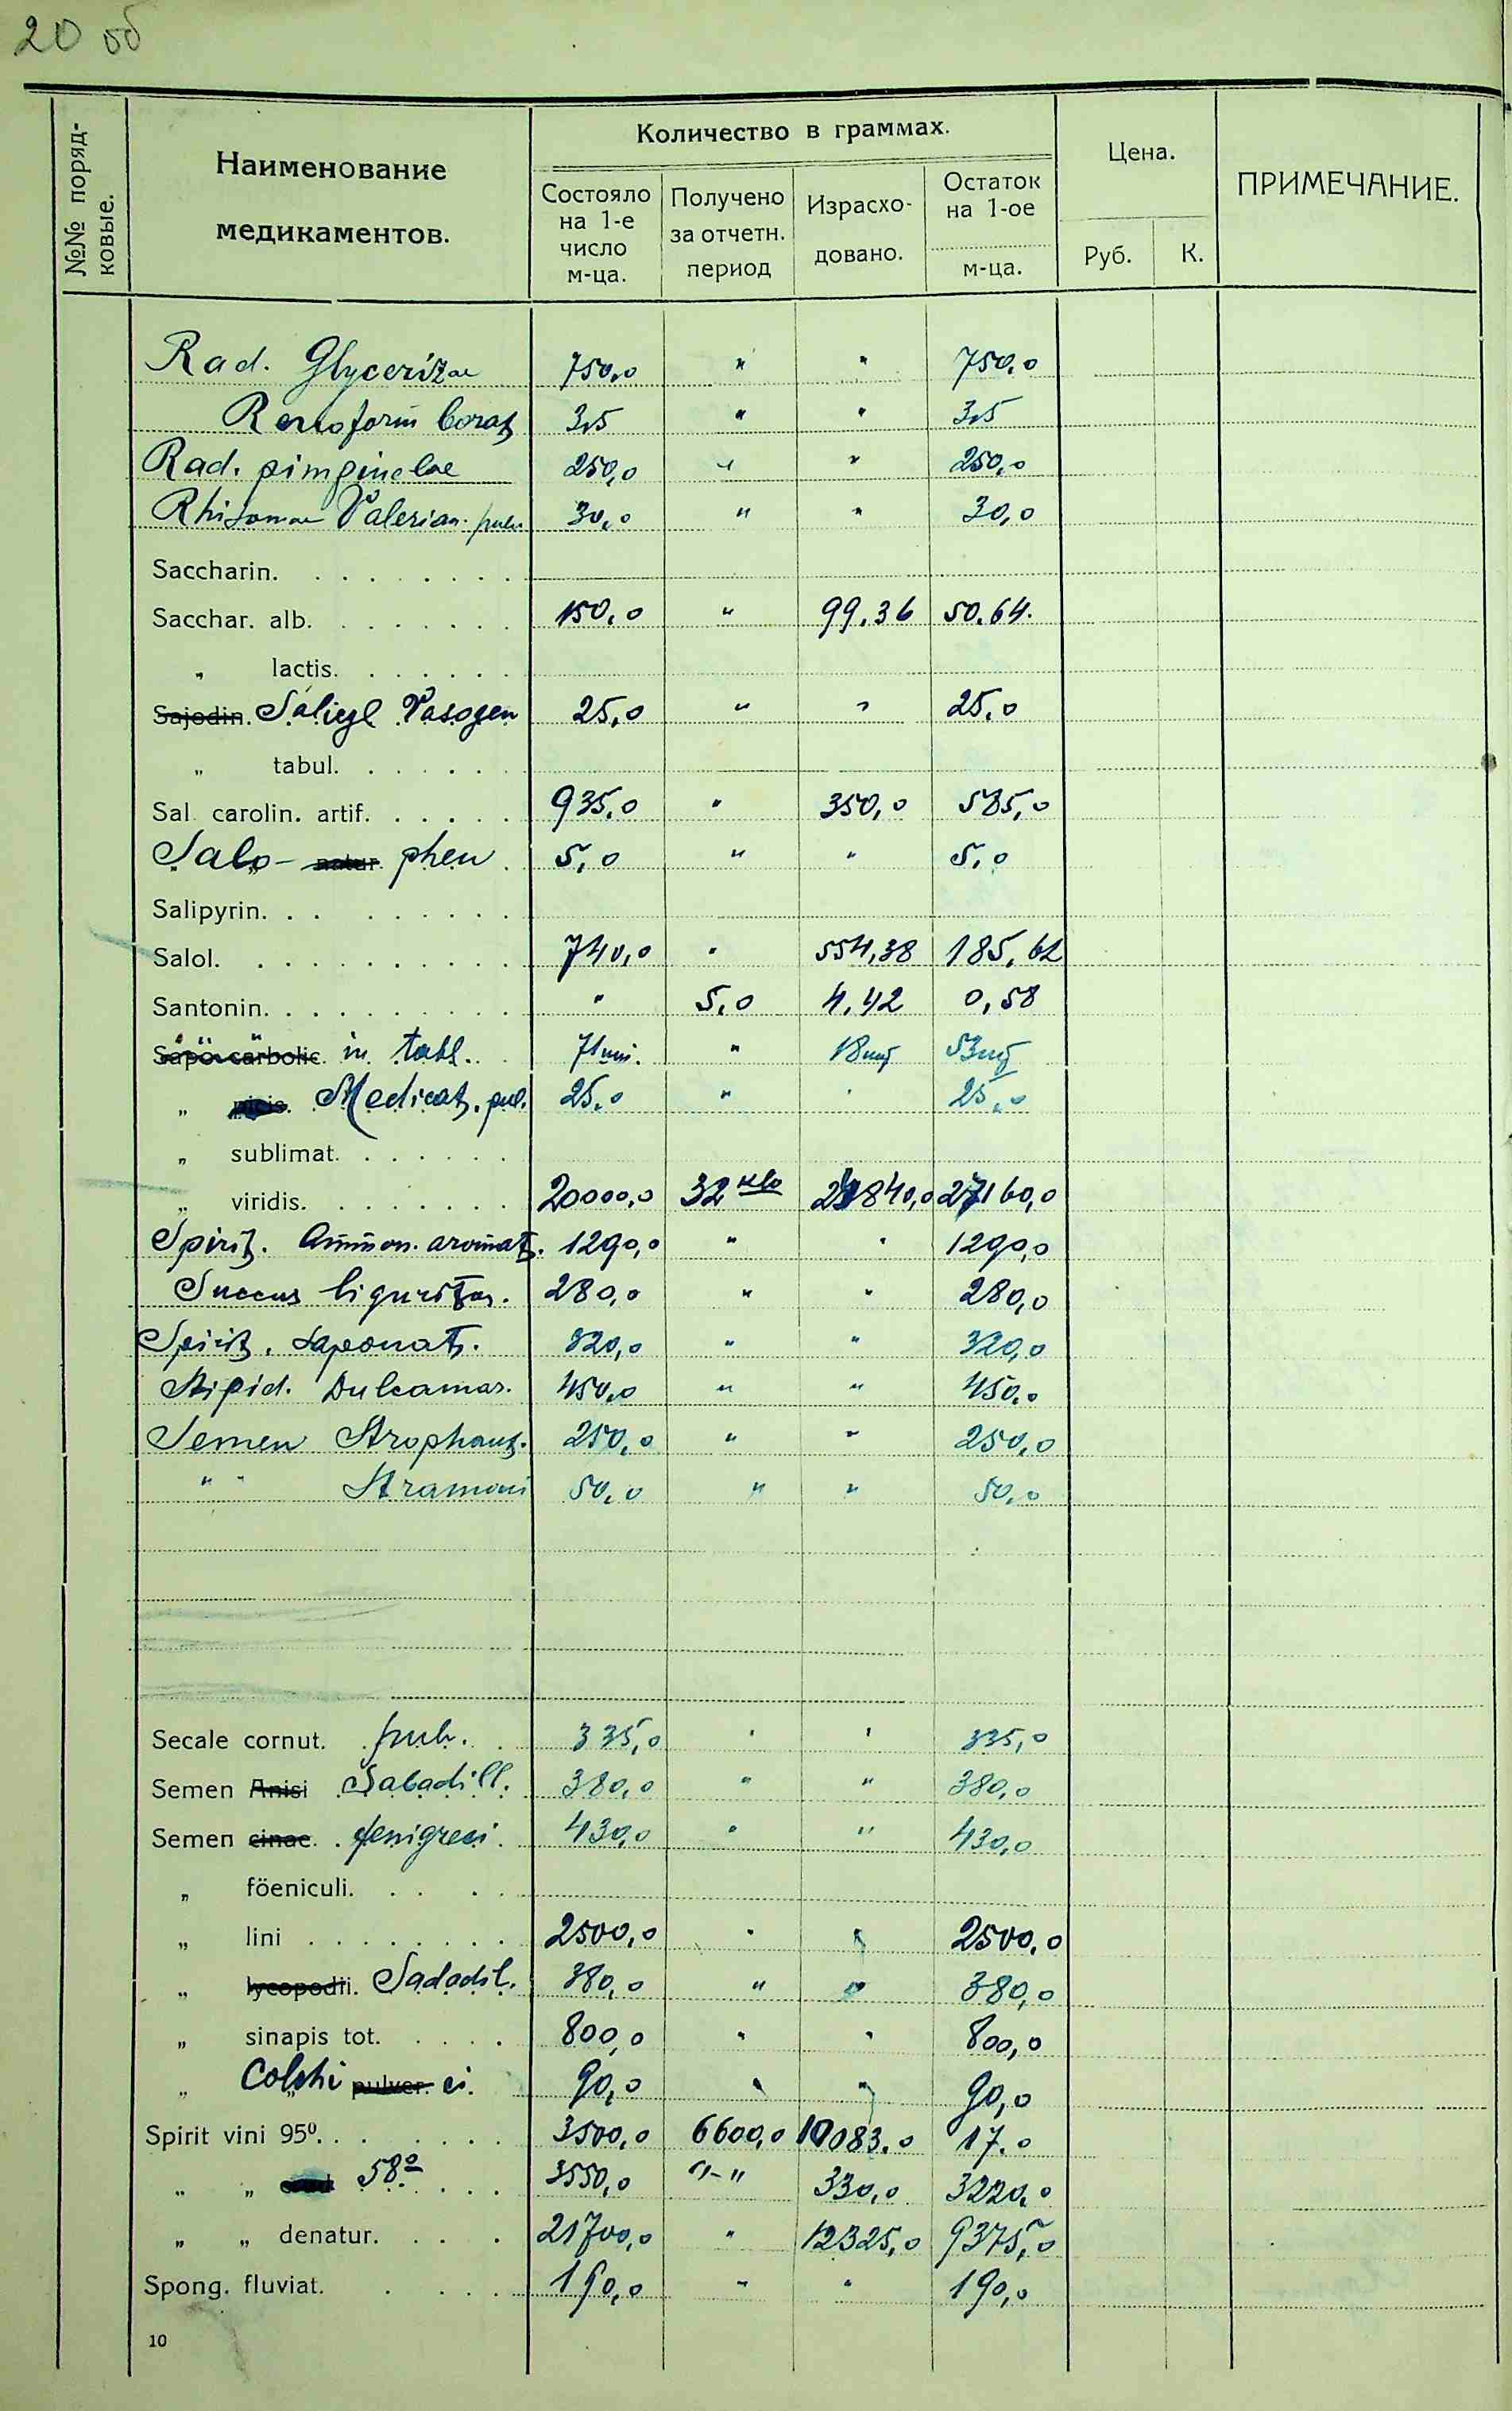 20 об
№№ поряд-
ковые.
Наименование
медикаментов.
Количество в граммах.
Состояло
на 1-е
число
м-ца.
Получено
за отчетн.
период
Израсхо-
довано.
Остаток
на 1-ое
м-ца.
Цена.
Руб. К.
ПРИМЕЧАНИЕ.
Rad. Glycerizae 750,0 " " 750,0
boraz 3,5 " " 3,5
Rad. pimpinelae 250,0 " " 250,0
Valerian. pulv. 30,0 " " 30,0
Saccharin.
Sacchar. alb. 150,0 " 99,36 50,64.
" lactis.
Sajodin. Vasogen 25,0 " " 25,0
" tabul.
Sal carolin. artif. 935,0 " 350,0 585,0
Salo- natur. phen 5,0 " " 5,0
Salipyrin.
Salol. 740,0 " 554,38 185,62
Santonin. " 5,0 4,42 0,58
Sapo carbolic. in tabl. 71 " 18 53
" picis. Medicat. pul. 25,0 " " 25,0
" sublimat.
" viridis. 20000,0 32 кло 840,0 27160,0
Spirit. Ammon. aromat. 1290,0 " " 1290,0
Succus 280,0 " " 280,0
Spirit. saponat. 320,0 " " 320,0
Stipid. Dulcamar. 450,0 " " 450,0
Semen Strophant. 250,0 " " 250,0
" " Stramoni 50,0 " " 50,0
Secale cornut. pulv. 335,0 " " 335,0
Semen Anisi Sabadill. 380,0 " " 380,0
Semen cinae. fenigreci. 430,0 " " 430,0
" föeniculi.
" lini 2500,0 " " 2500,0
" lycopodii. Sadadil. 380,0 " " 380,0
" sinapis tot. 800,0 " " 800,0
" Colchi pulver. ci. 90,0 " " 90,0
Spirit vini 95º. 3500,0 6600,0 10083,0 17,0
" " 58º 3550,0 "-" 330,0 3220,0
" " denatur. 21700,0 " 12325,0 9375,0
Spong. fluviat. 190,0 " " 190,0
10